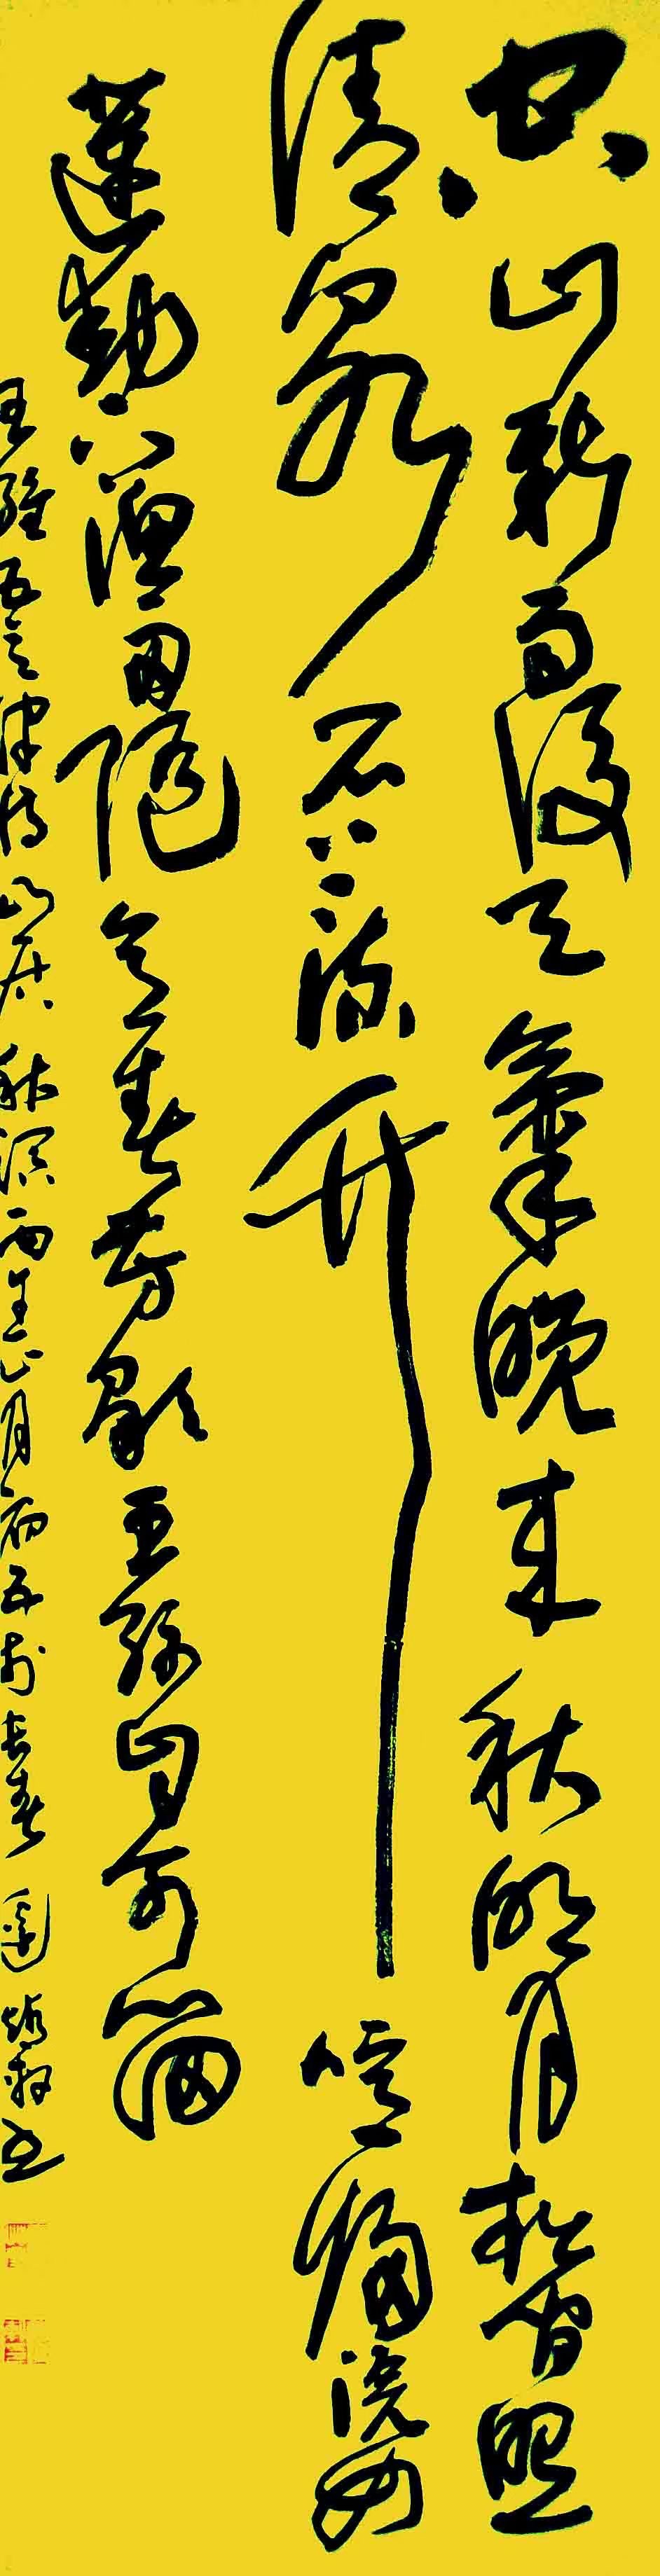 空山新雨後天氣晚來秋明月松間照
清泉石上流竹喧歸浣女
蓮動下漁舟隨意春芳歇王孫自可留
王維五言律詩山居秋暝正月初五於長春書